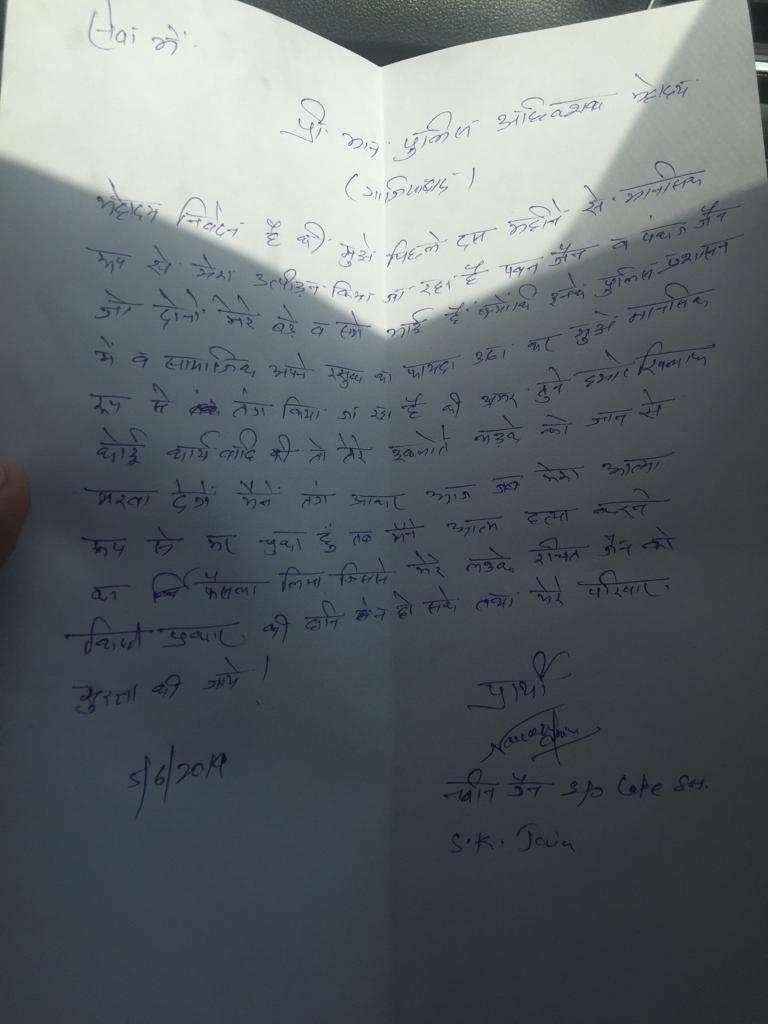 सेवा में
श्री मान पुलिस अधिक्षक महोदय
(गाजियाबाद)
महोदय निवेदन है की मुझे पिछले दस महीने से मानसिक
रूप से मेरा उत्पीड़न किया जा रहा है पवन जैन व पंकज जैन
जो दोनो मेरे बड़े व सगे भाई है क्योंकि इनके पुलिस प्रशासन
में व सामाजिक अपने रसुख का फायदा उठा कर मुझे मानसिक
रूप से तंग किया जा रहा है की अगर तुने हमारे खिलाफ
कोई कार्य वादि की तो तेरे इकलौते लडके को जान से
मरवा देगें मैंने तंग आकर आज जब मेरा आत्मा
रूप से मर चुका हुँ तब मैने आत्म हत्या करने
का फैसला लिया जिससे मेरे लडके रचित जैन को
किसी प्रकार की हानि न हो सके तथा मेरे परिवार
सुरक्षा की जाये !
प्रार्थी
5/6/2019
नवीन जैन S/o Late Sh.
S.K. Jain